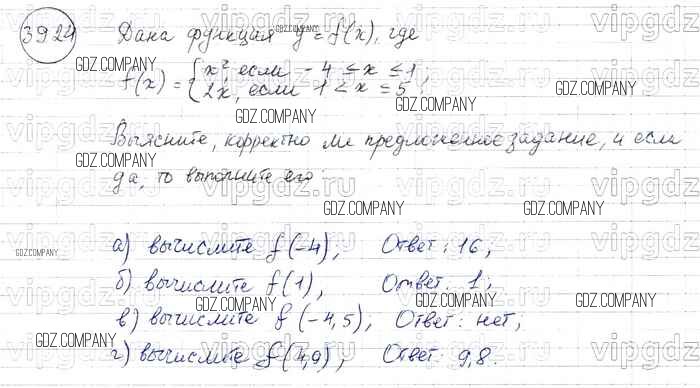 39.24 Дана функция y = f(x), где
f(x) = { x², если -4 ≤ x ≤ 1,
2x, если 1 < x ≤ 5
Выясните, корректно ли предложенное задание, и если
да, то выполните его:
а) вычислите f(-4), Ответ: 16,
б) вычислите f(1), Ответ: 1,
в) вычислите f(-4,5), Ответ: нет;
г) вычислите f(4,9), Ответ: 9,8.